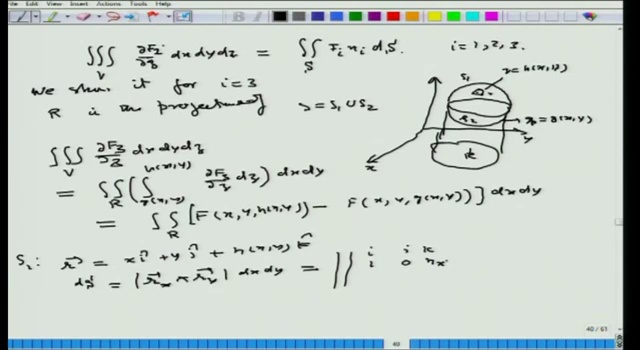 ∭_V ∂F_i/∂z dx dy dz = ∬_S F_i n_i dS. i=1,2,3.
We show it for i=3
R is the projection of S = S₁ ∪ S₂
S₁ z=h(x,y)
S₂ z=g(x,y)
y
x
R
∭_V ∂F₃/∂z dx dy dz
= ∬_R (∫_{g(x,y)}^{h(x,y)} ∂F₃/∂z dz) dx dy
= ∬_R [F(x,y,h(x,y)) − F(x,y,g(x,y))] dx dy
S₁: r⃗ = x î + y ĵ + h(x,y) k̂
dS = |r⃗_x × r⃗_y| dx dy = || i j k
1 0 h_x
40 / 61
40